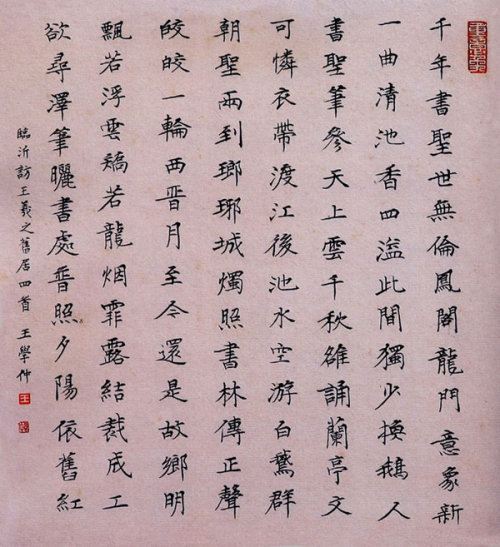 千年書聖世無倫鳳閣龍門意象新
一曲清池香四溢此間獨少換鵝人
書聖筆參天上雲千秋雒誦蘭亭文
可憐衣帶渡江後池水空游白鵞群
朝聖兩到瑯琊城燭照書林傳正聲
皎皎一輪西晋月至令還是故鄉明
飄若浮雲矯若龍烟霏露結裁成工
欲尋澤筆曬書處普照夕陽依舊紅
臨沂訪王羲之舊居四首 王學仲
王